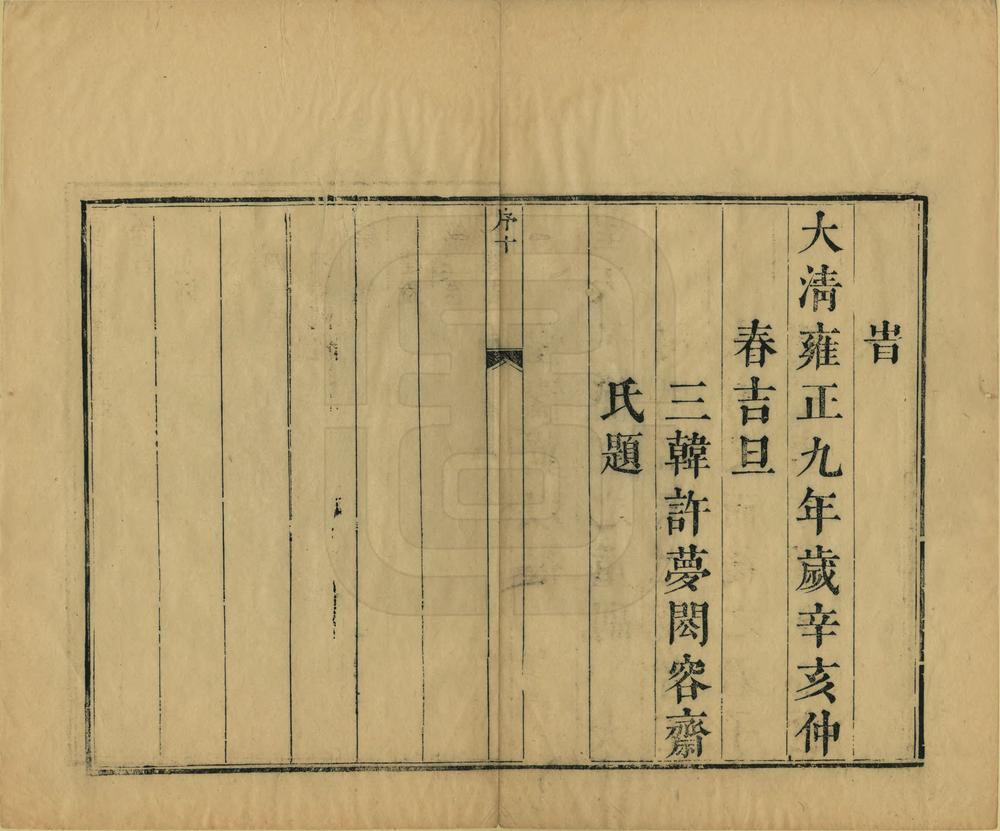 旹
大清雍正九年歲辛亥仲
春吉旦
三韓許夢閎容齋
氏題
序十